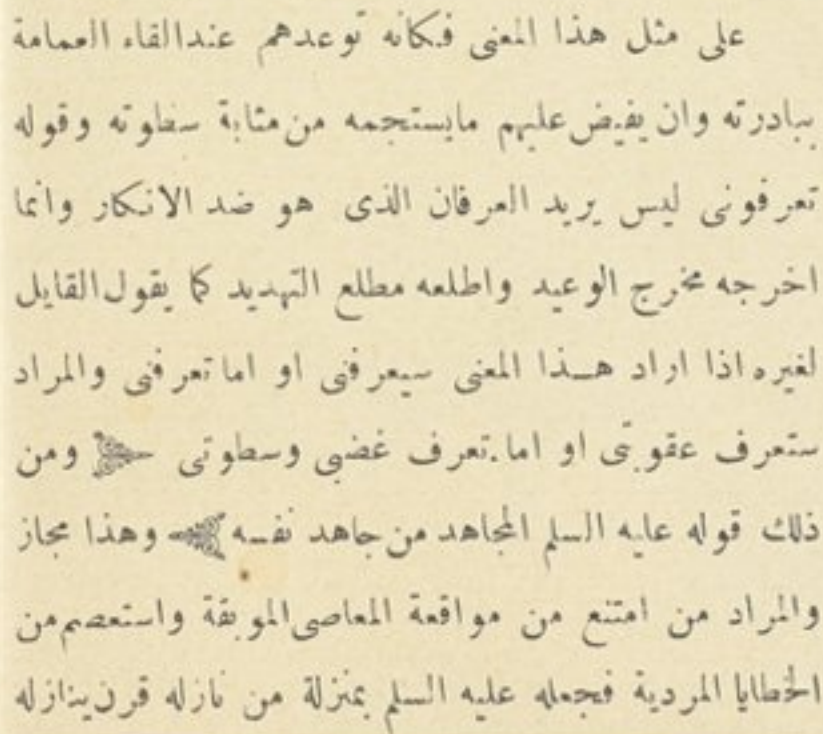 على مثل هذا المعنى فكأنه توعدهم عندالقاء العمامة
ببادرته وان يفيض عليهم مايستجمه من مثابة سطوته وقوله
تعرفونى ليس يريد العرفان الذى هو ضد الانكار وانما
اخرجه مخرج الوعيد واطلعه مطلع التهديد كما يقول القايل
لغيره اذا اراد هذا المعنى سيعرفنى او اما تعرفنى والمراد
ستعرف عقوبتى او اما تعرف غضبى وسطوتى ومن
ذلك قوله عليه السلم المجاهد من جاهد نفسه وهذا مجاز
والمراد من امتنع من مواقعة المعاصى الموبقة واستعصم من
الخطايا المردية فجعله عليه السلم بمنزلة من نازله قرن ينازله